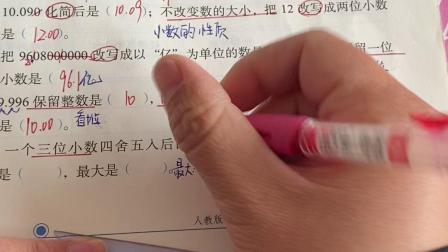 10.090 化简后是（10.09）；不改变数的大小，把 12 改写成两位小数
（1200）。小数的性质
把 9608000000 改写成以“亿”为单位的数是 留一位
小数是（96.1亿）
9.996 保留整数是（10），
是（10.00）。看百
一个三位小数四舍五入后
是（ ），最大是（ ）。最大
人教版